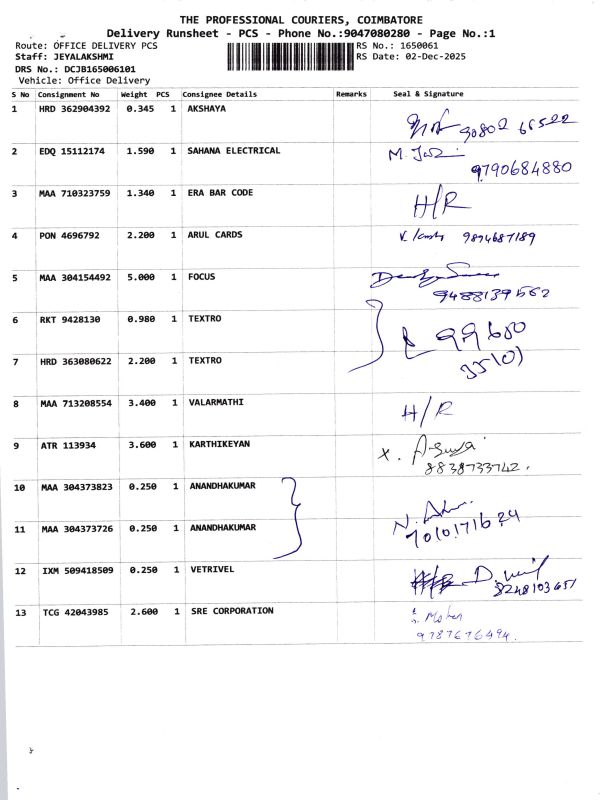 THE PROFESSIONAL COURIERS, COIMBATORE
Delivery Runsheet - PCS - Phone No.:9047080280 - Page No.:1
Route: OFFICE DELIVERY PCS RS No.: 1650061
Staff: JEYALAKSHMI RS Date: 02-Dec-2025
DRS No.: DCJB165006101
Vehicle: Office Delivery
S No Consignment No Weight PCS Consignee Details Remarks Seal & Signature
1 HRD 362904392 0.345 1 AKSHAYA
2 EDQ 15112174 1.590 1 SAHANA ELECTRICAL
9790684880
3 MAA 710323759 1.340 1 ERA BAR CODE H/R
4 PON 4696792 2.200 1 ARUL CARDS 9894687189
5 MAA 304154492 5.000 1 FOCUS
9488139562
6 RKT 9428130 0.980 1 TEXTRO
7 HRD 363080622 2.200 1 TEXTRO
8 MAA 713208554 3.400 1 VALARMATHI H/R
9 ATR 113934 3.600 1 KARTHIKEYAN
8838733742.
10 MAA 304373823 0.250 1 ANANDHAKUMAR
11 MAA 304373726 0.250 1 ANANDHAKUMAR
12 IXM 509418509 0.250 1 VETRIVEL
8248103651
13 TCG 42043985 2.600 1 SRE CORPORATION
9787676494.